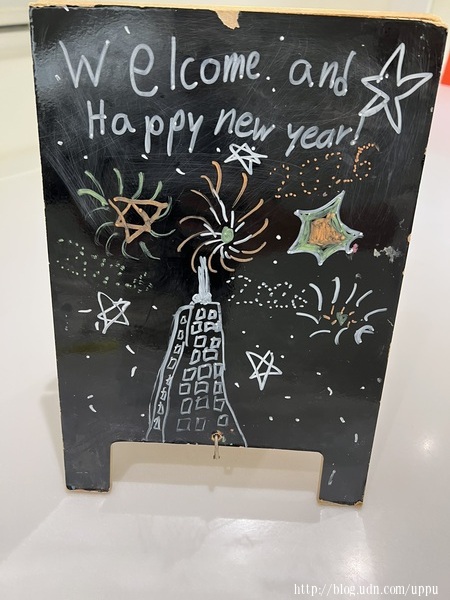 Welcome and
Happy new year!
2026
2026
2026
http://blog.udn.com/uppu